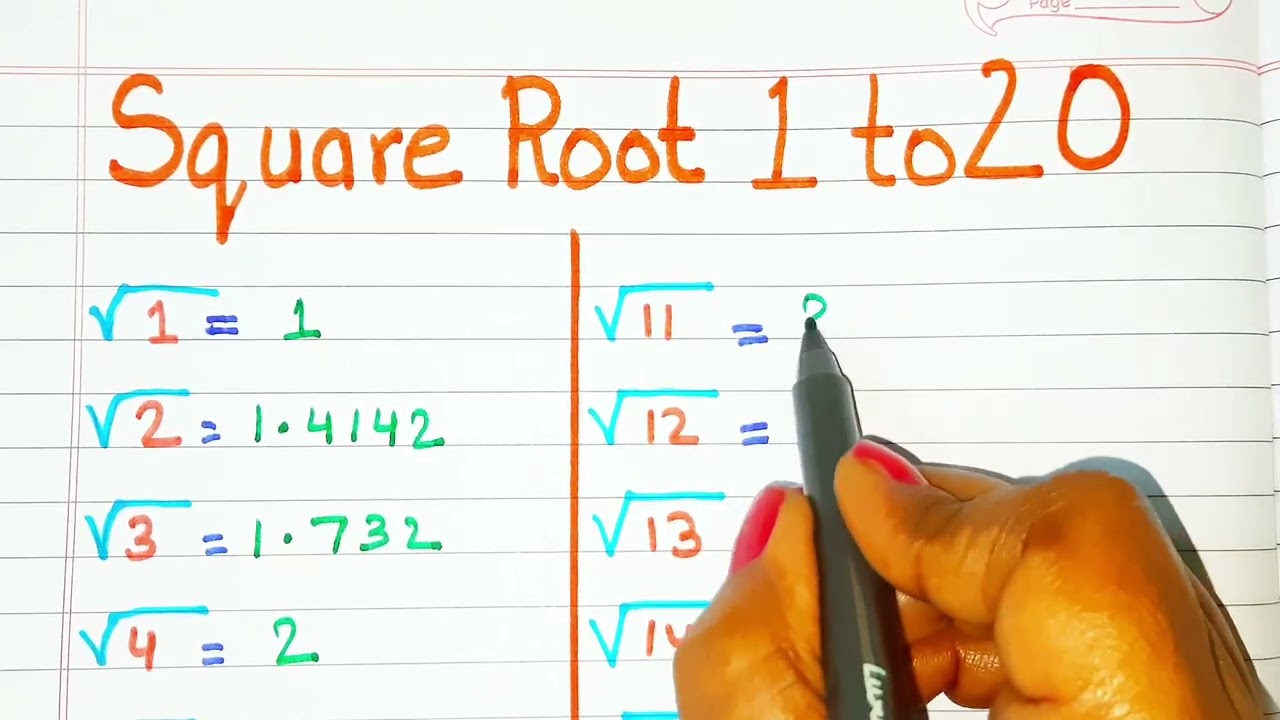 Page
Square Root 1 to 20
√1 = 1
√2 = 1.4142
√3 = 1.732
√4 = 2
√11 =
√12 =
√13
√14